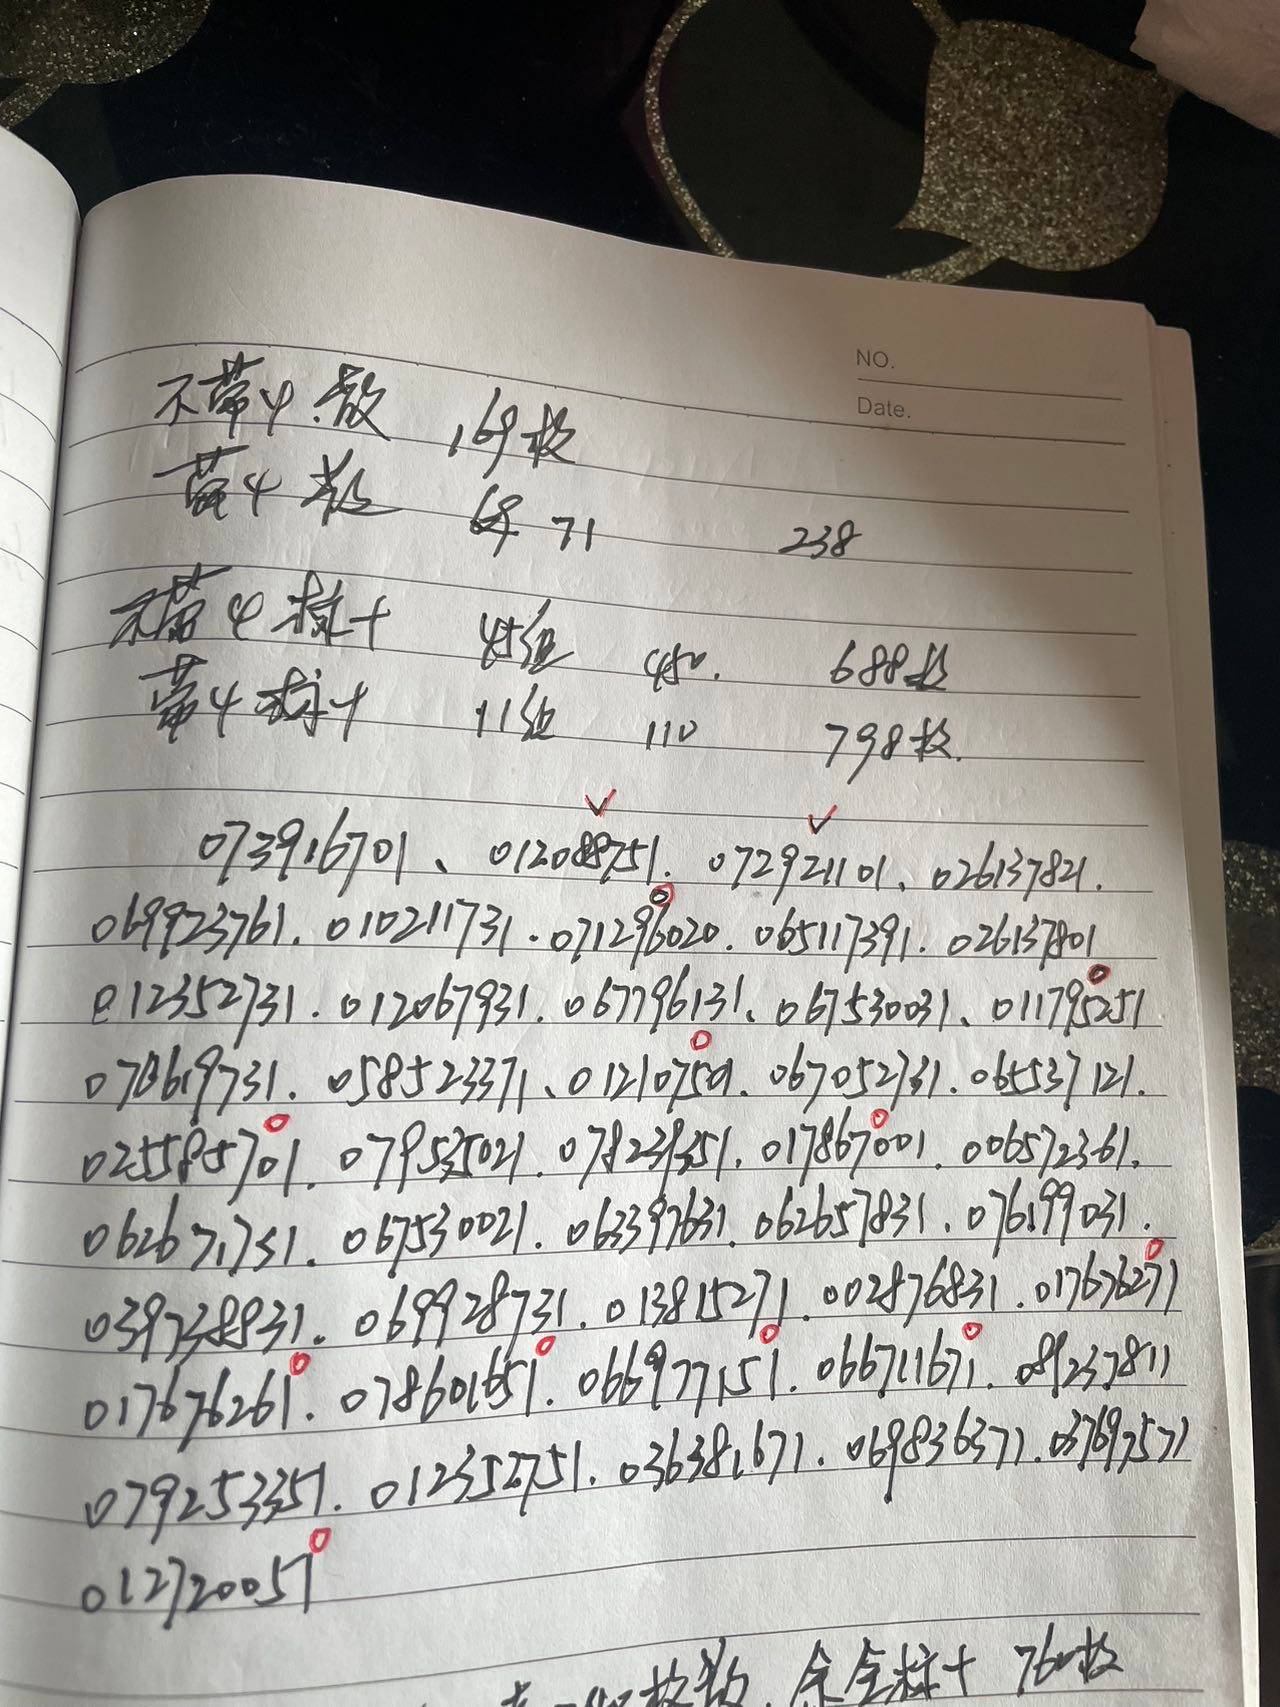 NO.
Date.
不带4散 169枚
带4散 69 71 238
不带4标十 45组 450. 688枚
带4标十 11组 110 798枚.
073916701、012088751.072921101、026137821.
069923761.010211731.071296020.065117391.026137801
012352731.012067931.067796131、067530031、011795251
070619731.058523371、012107501.067052731.065537121.
025585701.079535021.078239351.017867001.006572361.
062671731.067530021.063397631.062657831、076199031.
039738831.069928731.013815271.002876831.017676271
017676261.078601651.066977151.066711671.089237811
079253351.012352751.036381671.069836371.037697571
012720051
枚散.余全标十 760枚